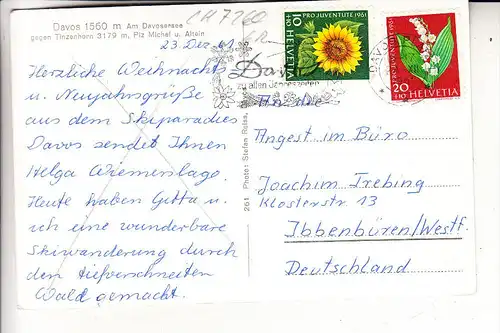 Davos 1560 m Am Davosersee
gegen Tinzenhorn 3179 m, Piz Michel u. Altein
CH 7260
23. Dez. 61
Herzliche Weihnachts
u. Neujahrsgrüße
aus dem Skiparadies
Davos sendet Ihnen
Helga Wiemenslage.
Heute haben Gitta u.
ich eine wunderbare
Skiwanderung durch
den tiefverschneiten
Wald gemacht.
261 Photo: Stefan Reiss,
10 +10 PRO JUVENTUTE 1961
HELVETIA
PRO JUVENTUTE 1961
20 +10 HELVETIA
Davos
zu allen Jahreszeiten
DAVOS
An den
Angest im Büro
Joachim Trebing
Klosterstr 13
Ibbenbüren/Westf.
Deutschland